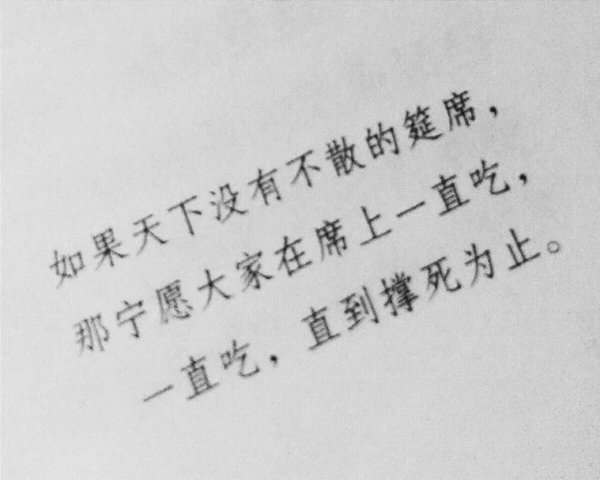 如果天下没有不散的筵席，
那宁愿大家在席上一直吃，
一直吃，直到撑死为止。